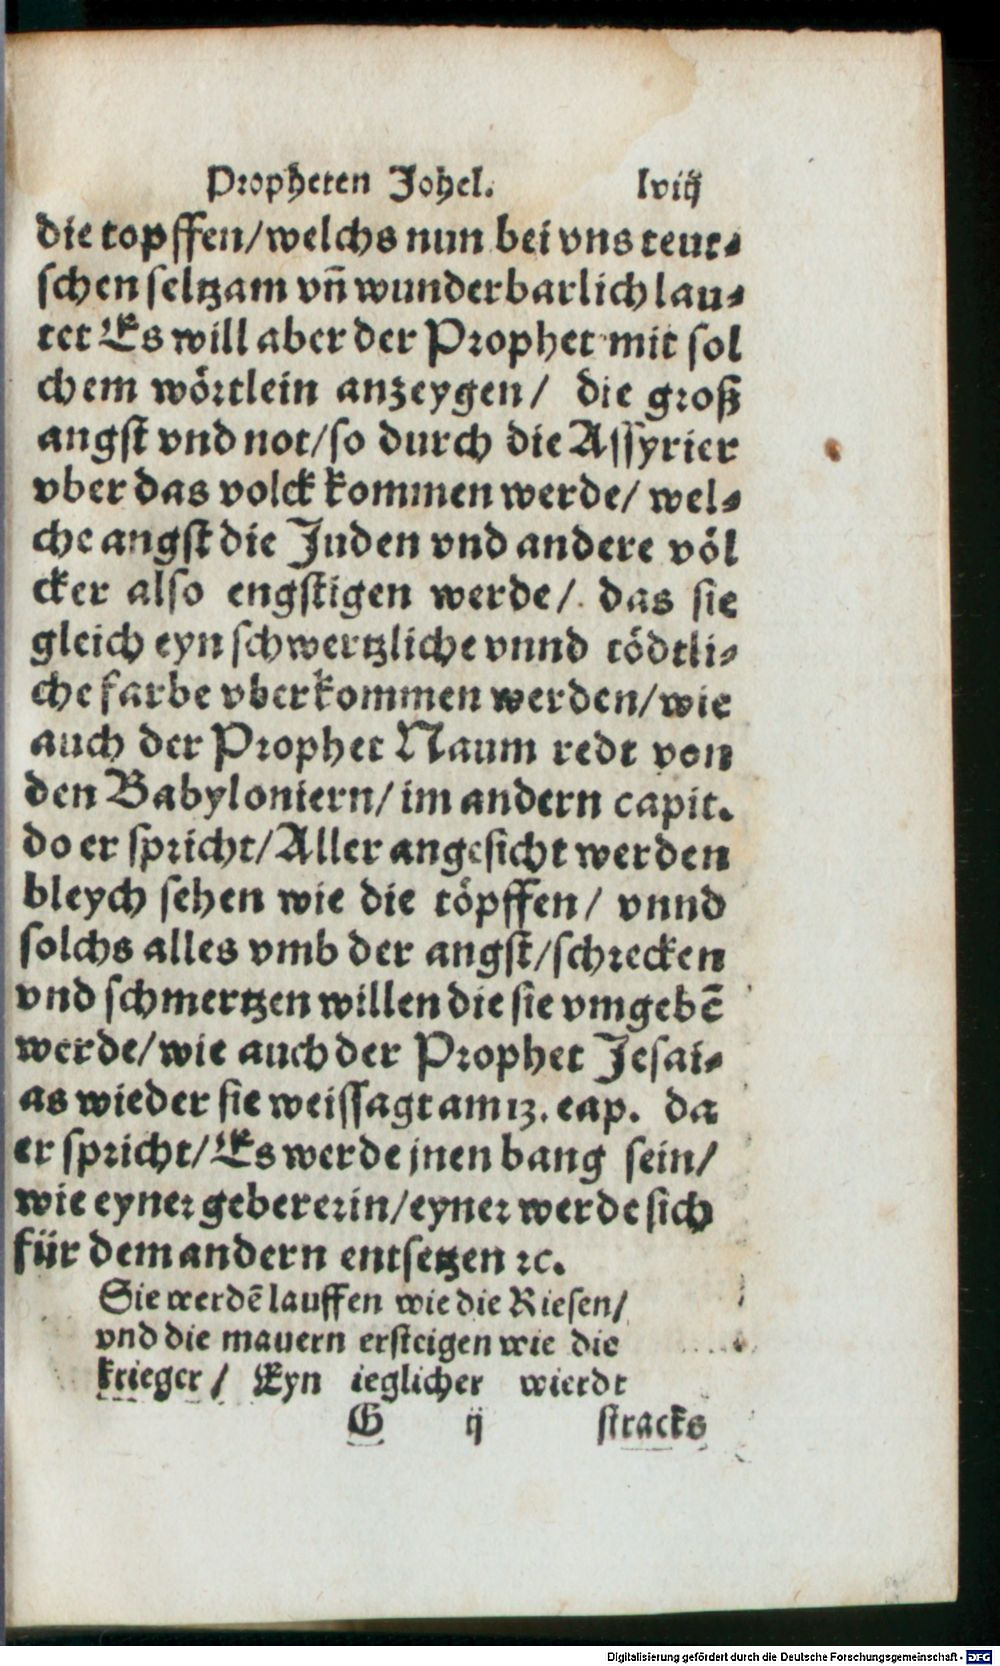 Propheten Johel. lviij
die topffen/welchs nun bei vns teut⸗
schen seltzam vn̄ wunderbarlich lau⸗
tet Es will aber der Prophet mit sol
chem wörtlein anzeygen/ die groß
angst vnd not/so durch die Assyrier
vber das volck kommen werde/ wel⸗
che angst die Juden vnd andere völ
cker also engstigen werde/ das sie
gleich eyn schwertzliche vnnd tödtli⸗
che farbe vberkommen werden/wie
auch der Prophet Naum redt von
den Babyloniern/ im andern capit.
do er spricht/Aller angesicht werden
bleych sehen wie die töpffen/ vnnd
solchs alles vmb der angst/schrecken
vnd schmertzen willen die sie vmgebē
werde/wie auch der Prophet Jesai⸗
as wieder sie weissagt am 13. eap. da
er spricht/Es werde jnen bang sein/
wie eyner gebererin/eyner werde sich
für dem andern entsetzen ꝛc.
Sie werdē lauffen wie die Riesen/
vnd die mauern ersteigen wie die
krieger/ Eyn ieglicher wierdt
G ij stracks
Digitalisierung gefördert durch die Deutsche Forschungsgemeinschaft - DFG